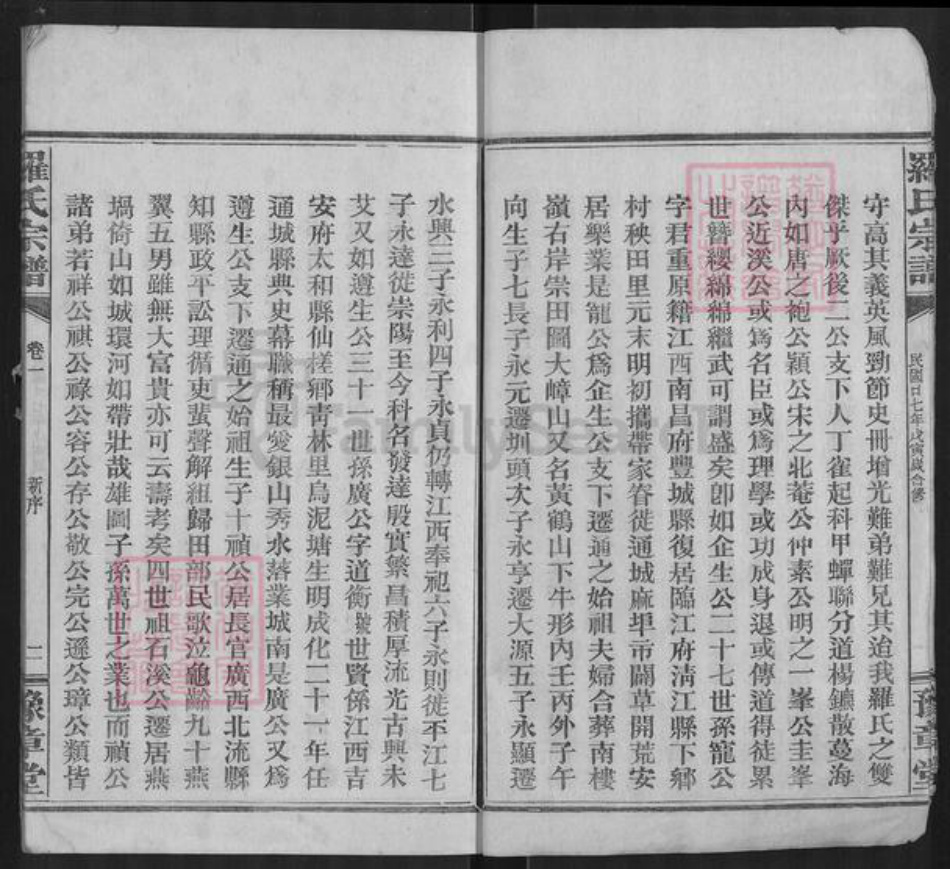 羅氏宗譜
民國廿七年戊寅歲合修
豫章堂
守高其義英風勁節史冊增光難弟難兄其迨我羅氏之雙
傑乎厥後二公支下人丁崔起科甲蟬聯分道楊鑣散蔓海
內如唐之袍公潁公宋之北菴公仲素公明之一峯公圭峯
公近溪公或爲名臣或爲理學或功成身退或傳道得徒累
世簪纓綿綿繼武可謂盛矣卽如企生公二十七世孫寵公
字君重原籍江西南昌府豐城縣復居臨江府淸江縣下鄉
村秧田里元末明初攜帶家眷徙通城麻埠市闢草開荒安
居樂業是寵公爲企生公支下遷通之始祖夫婦合葬南樓
嶺右岸崇田圖大嶂山又名黃鶴山下牛形內壬丙外子午
向生子七長子永元遷圳頭次子永亨遷大源五子永顯遷
水興三子永利四子永貞仍轉江西奉祀六子永則徙平江七
子永達徙崇陽至今科名發達殷實繁昌積厚流光古興未
艾又如遵生公三十一世孫廣公字道衡號世賢係江西吉
安府太和縣仙槎鄉靑林里烏泥塘生明成化二十一年任
通城縣典史幕職稱最愛銀山秀水落業城南是廣公又爲
遵生公支下遷通之始祖生子十禎公居長官廣西北流縣
知縣政平訟理循吏蜚聲解組歸田部民歌泣龜齡九十燕
翼五男雖無大富貴亦可云壽考矣四世祖石溪公遷居燕
堝倚山如城環河如帶壯哉雄圖子孫萬世之業也而禎公
諸弟若祥公祺公祿公容公存公敬公完公遜公璋公類皆
羅氏宗譜
卷一
新序
二
豫章堂
FamilySearch